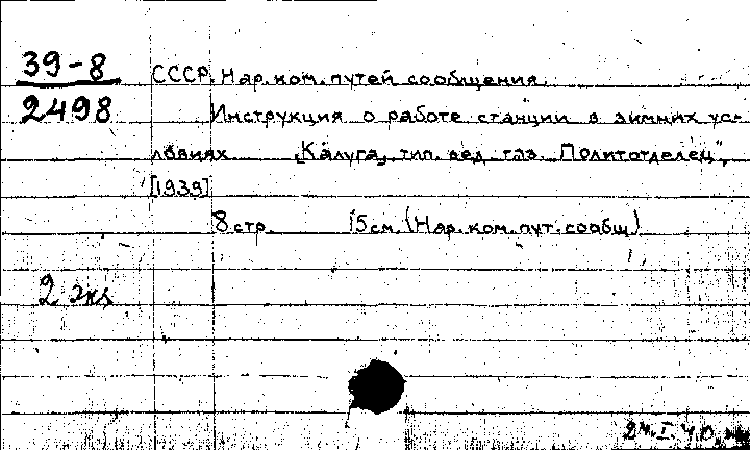 39-8
2498
СССР. Нар. ком. путей сообщения.
Инструкция о работе станции в зимних ус-
ловиях. [Калуга, тип. вед. газ. "Политотделец",
[1939]
8 стр. 15 см. (Нар. ком. пут. сообщ.)
2 экз
24.I.40